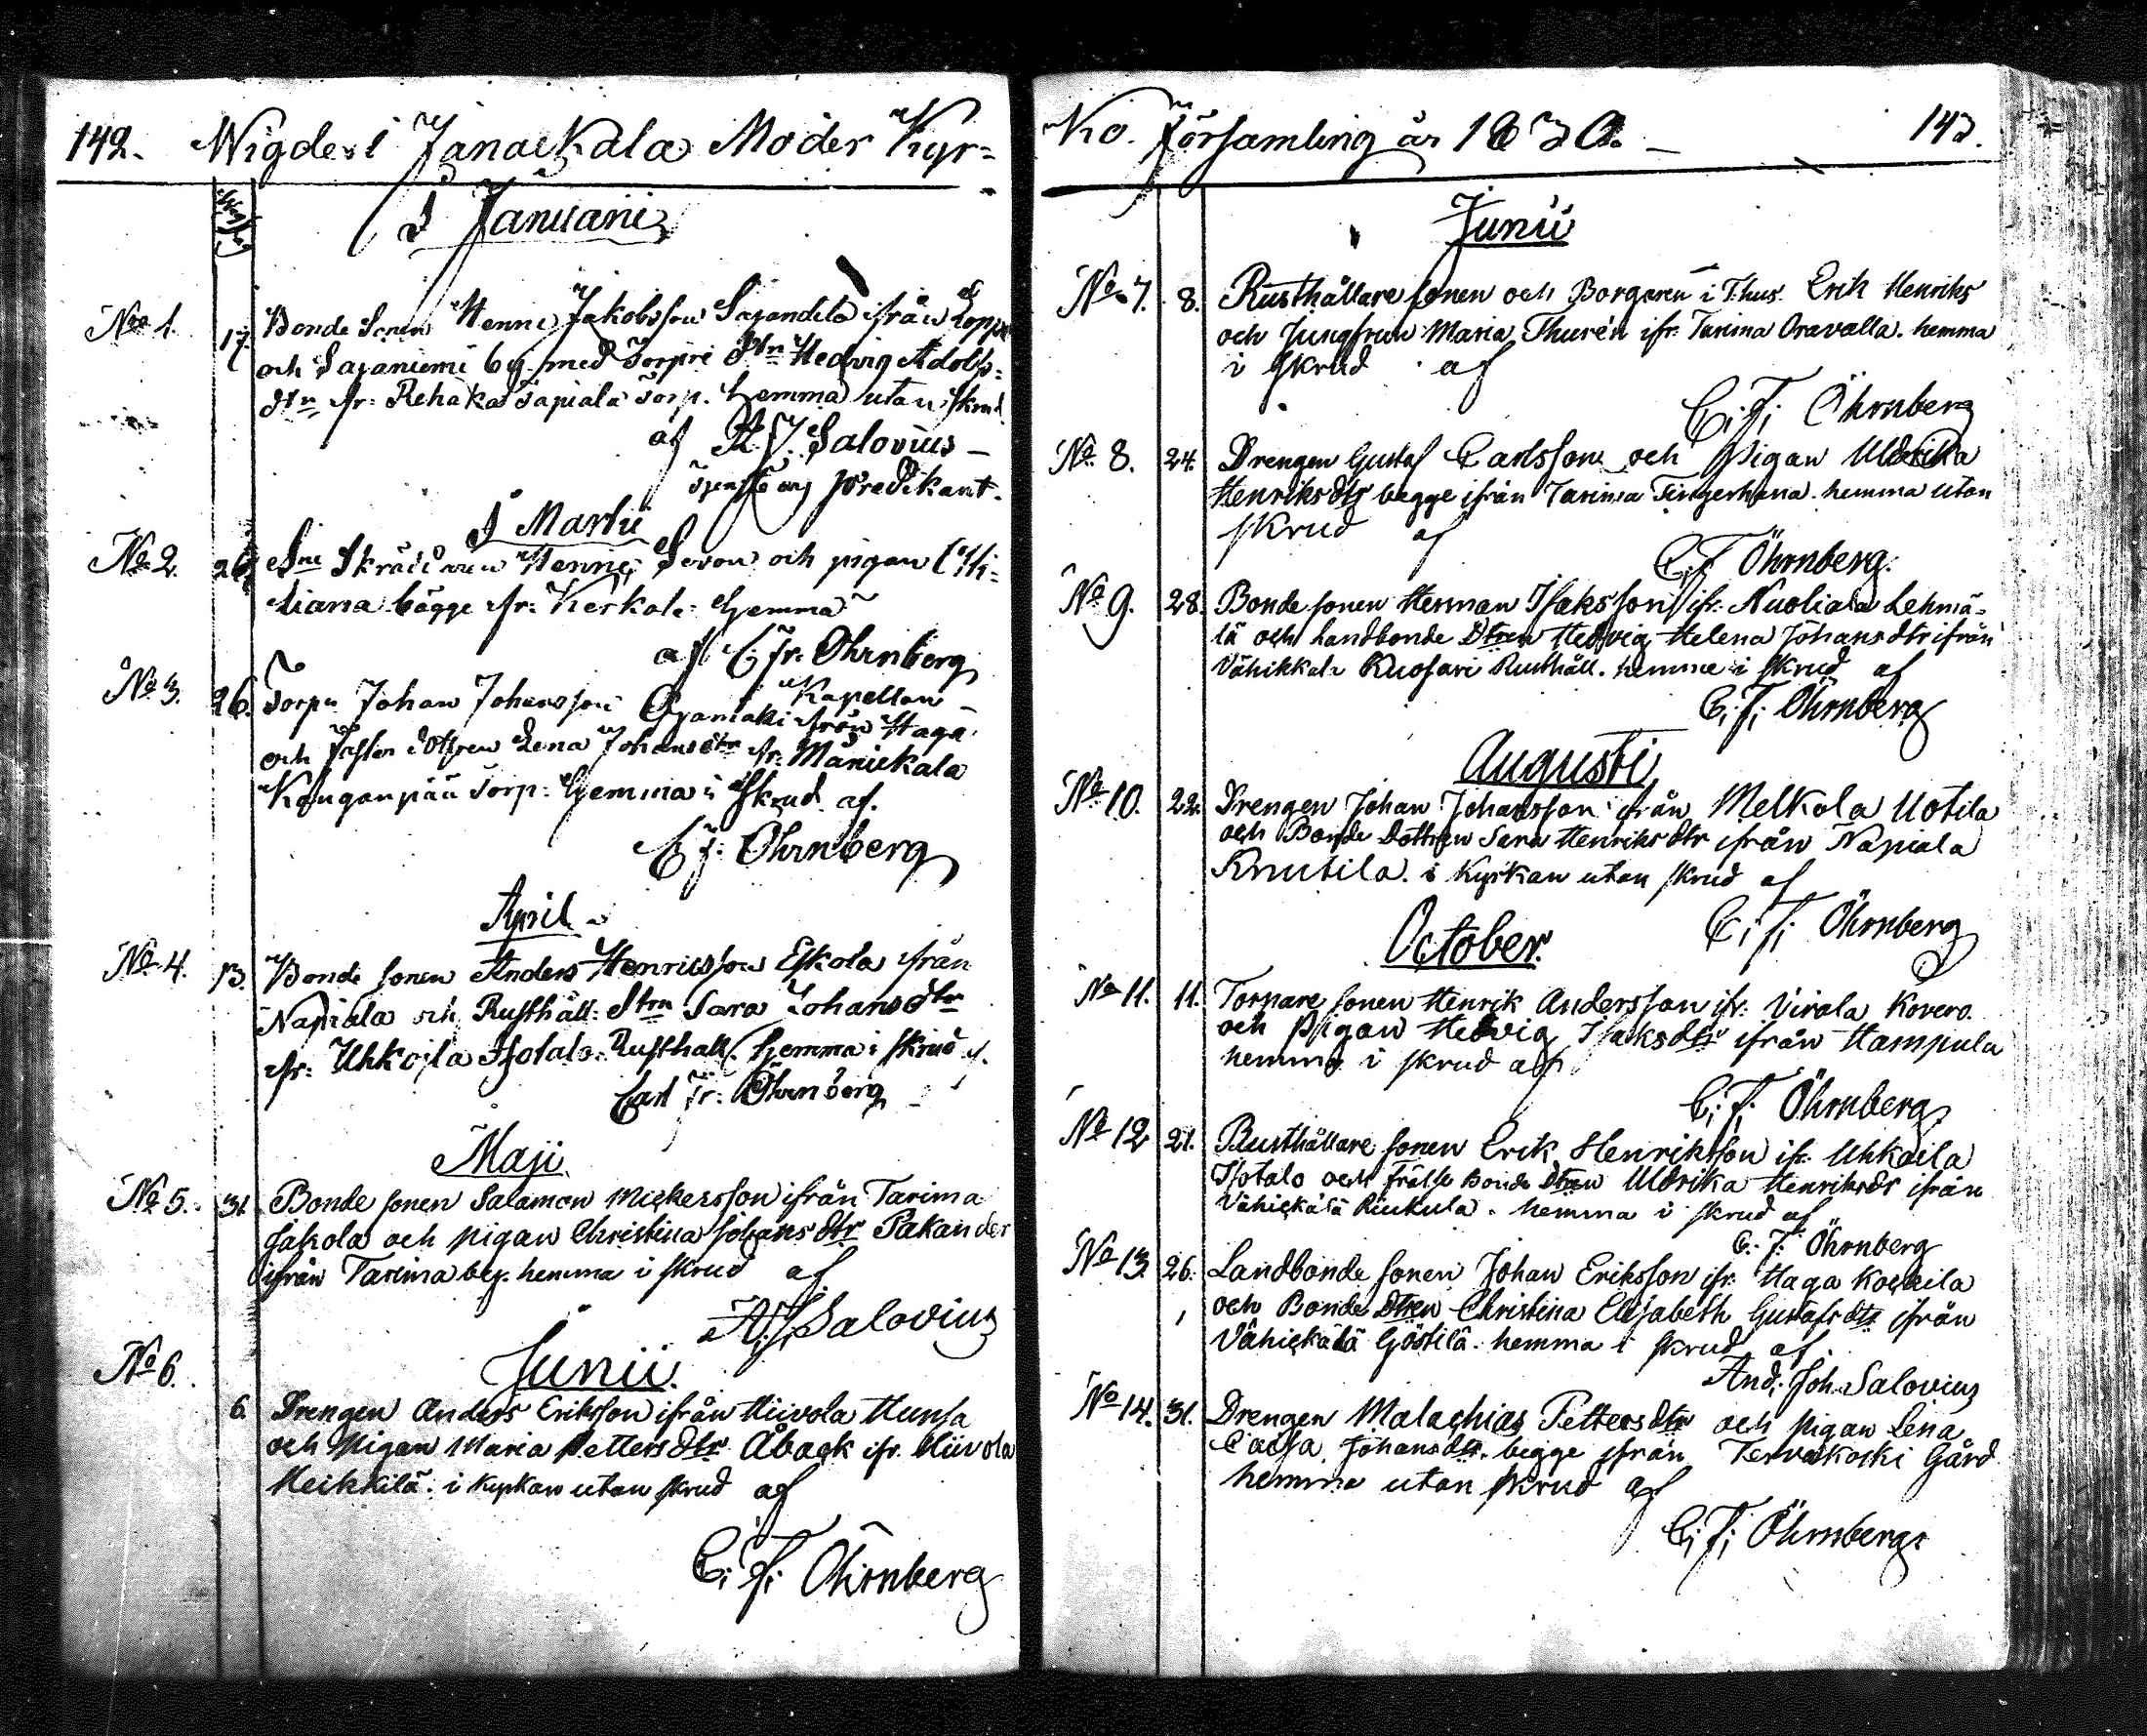 142. Wigde i Janackala Moder Kyr=
I Januari
No 1. 17. Bonde Sonen Henric Jakobsson Sajandila ifrån Loppi
och Sajaniemi by med Torpare Dtrn Hedvig Adolfs=
dtr ifr: Rehaka Tapiala Torp. hemma utan skrud
af A. J. Salovius
predikant.
I Martii
No 2. 26. Skräddaren Henric Seron och pigan Chri=
stiana bägge ifr: Kerkola hemma
af C. Fr. Öhrnberg
Kapellan
No 3. 26. Torpn Johan Johansson Ojamäki ifrån Haga
och Dottren Lena Johansdtr ifr: Mänickala
Kånganpää Torp: hemma i Skrud af.
C. F. Öhrnberg
April
No 4. 13. Bonde sonen Anders Henricsson Eskola ifrån
Napiala och Rusthåll: Dtrn Sara Johansdtr
ifr: Uhkoila Isotalo Rusthåll. hemma i skrud af.
Carl Fr: Öhrnberg
Maji
No 5. 31. Bonde sonen Salamon Mickersson ifrån Tarima
Jakola och pigan Christina Johansdtr Pakander
ifrån Tarima by. hemma i skrud af
A. J. Salovius
Junii.
No 6.
6. Drengen Anders Eriksson ifrån Hiivola Hunsa
och Pigan Maria Pettersdtr Åback ifr. Hiivola
Heikkilä. i kyrkan utan skrud af
C. F. Öhrnberg
ko. församling år 1830. 143.
Junii
No 7. 8. Rusthållare sonen och Borgaren i T.hus. Erik Henriks
och Jungfrun Maria Thurén ifr. Tarima Oravalla. hemma
i skrud af
C. F. Öhrnberg
No 8. 24. Drengen Gustaf Carlsson och Pigan Uldrika
Henriksdtr begge ifrån Tarima Tingerhana. hemma utan
skrud af
C. F. Öhrnberg.
No 9. 28. Bonde sonen Herman Isaksson ifr. Nuoliala Lehmä-
lä och Landbonde Dtren Hedvig Helena Johansdtr ifrån
Vähikkala Kuosari Rusthåll. hemma i skrud af
C. F. Öhrnberg
Augusti
No 10. 22. Drengen Johan Johansson ifrån Melkola Uotila
och Bonde Dottren Sara Henriksdtr ifrån Napiala
Knutila. i Kyrkan utan skrud af
C. F. Öhrnberg
October.
No 11. 11. Torpare sonen Henrik Andersson ifr. Virala Kovero
och Pigan Hedvig Isaksdtr ifrån Hampula
hemma i skrud af
C. F. Öhrnberg
No 12 21. Rusthållare sonen Erik Henriksson ifr. Uhkoila
Isotalo och Frälse Bonde Dtren Uldrika Henriksdr ifrån
Vähickälä Riukula. hemma i skrud af
C. F. Öhrnberg
No 13. 26. Landbonde sonen Johan Eriksson ifr. Haga Kockila
och Bonde Dtren Christina Elisabeth Gustafsdtr ifrån
Vähickälä Göstilä. hemma i skrud af.
And. Joh. Salovius
No 14. 31. Drengen Malachias Pettersdtr och pigan Lena
Caisa Johansdtr. begge ifrån Tervakoski Gård
hemma utan skrud af
C. F. Öhrnberg